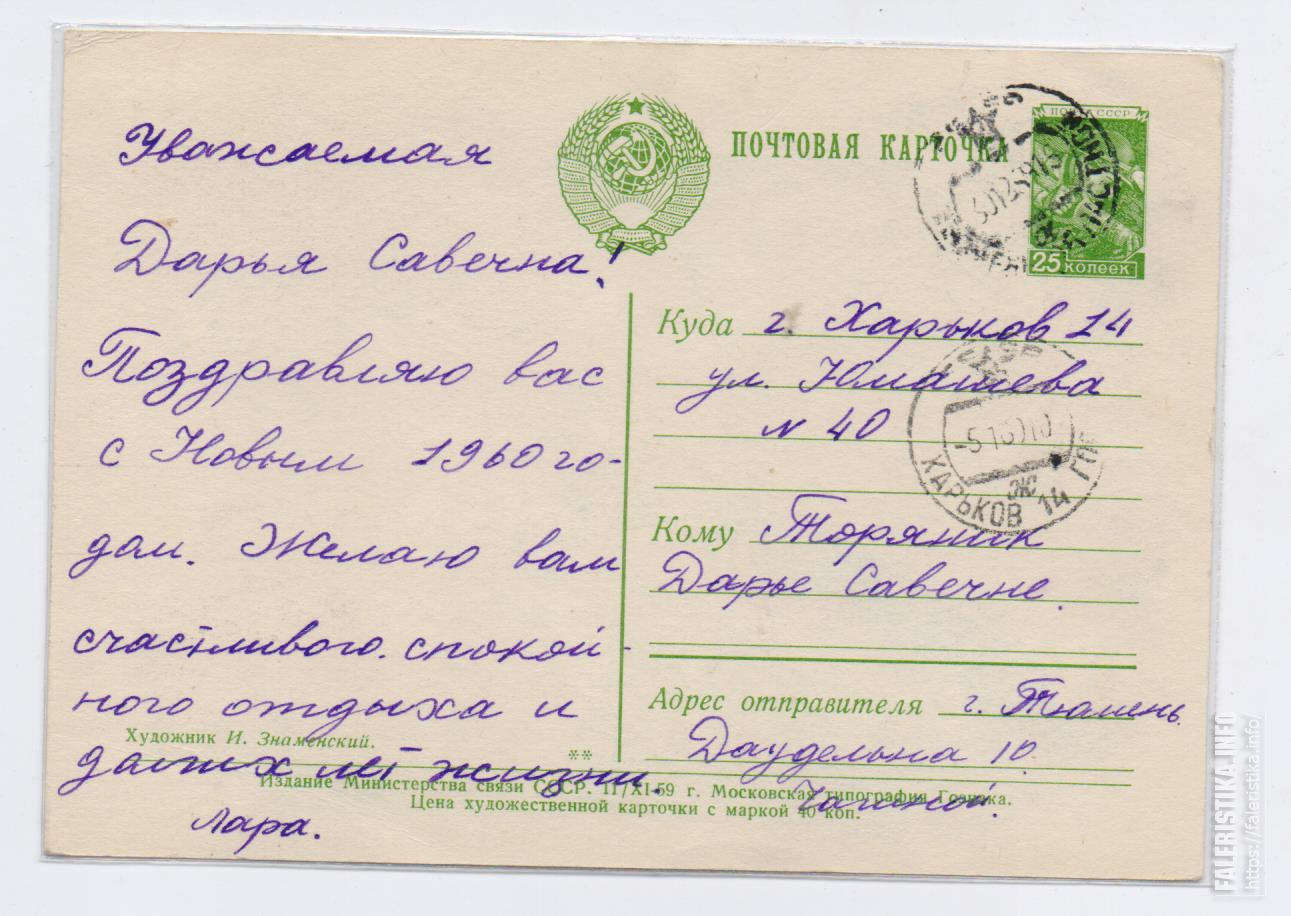 Уважаемая
Дарья Савечна!
Поздравляю вас
с Новым 1960 го-
дом. Желаю вам
счастливого. спокой-
ного отдыха и
долгих лет жизни.
Лара.
ПОЧТОВАЯ КАРТОЧКА
ПОЧТА СССР
25 КОПЕЕК
Куда г. Харьков 14
ул. Юмашева
N 40
ХАРЬКОВ 14
Кому Торяник
Дарье Савечне.
Адрес отправителя г. Тюмень.
Даудельна 10.
Художник И. Знаменский.
**
Издание Министерства связи СССР. 11/XI-59 г. Московская типография Гознака.
Цена художественной карточки с маркой 40 коп.
FALERISTIKA.INFO
https://faleristika.info